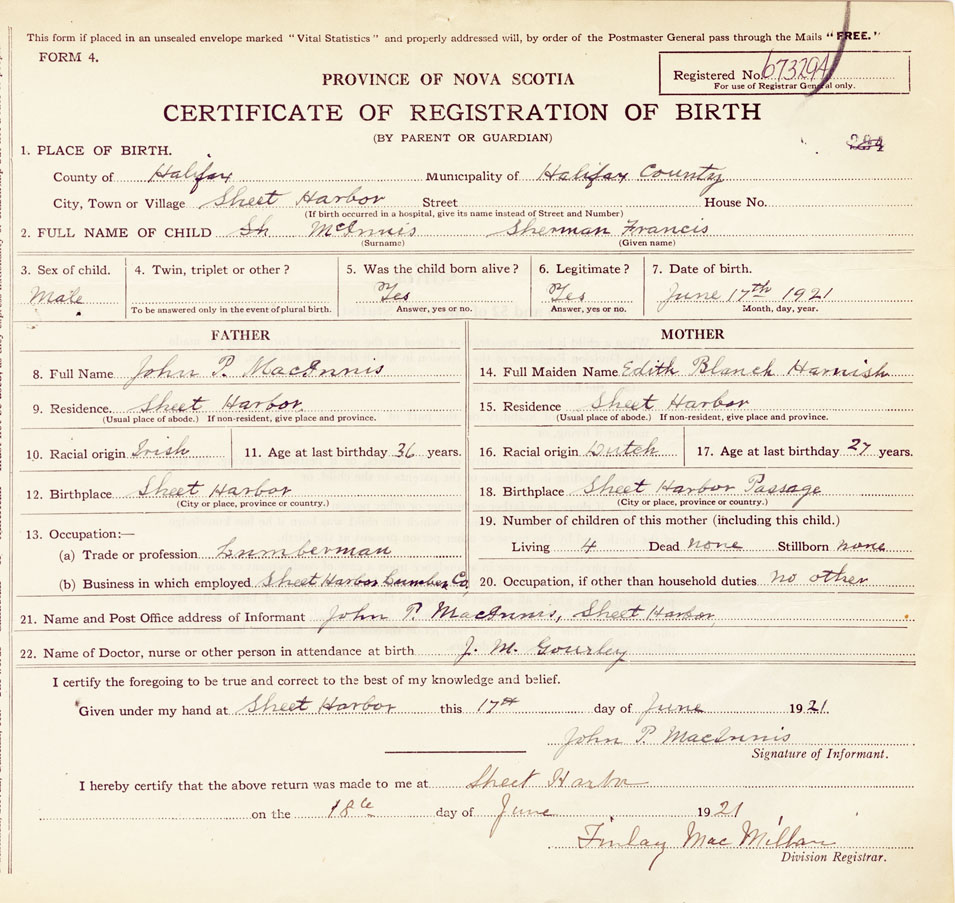 This form if placed in an unsealed envelope marked "Vital Statistics" and properly addressed will, by order of the Postmaster General pass through the Mails "FREE."
FORM 4.
Registered No. 673294
For use of Registrar General only.
PROVINCE OF NOVA SCOTIA
CERTIFICATE OF REGISTRATION OF BIRTH
(BY PARENT OR GUARDIAN)
1. PLACE OF BIRTH.
County of Halifax Municipality of Halifax County
City, Town or Village Sheet Harbor Street House No.
(If birth occurred in a hospital, give its name instead of Street and Number)
2. FULL NAME OF CHILD Sh McInnis Sherman Francis
(Surname) (Given name)
3. Sex of child. 4. Twin, triplet or other? 5. Was the child born alive? 6. Legitimate? 7. Date of birth.
Male Yes Yes June 17th 1921
To be answered only in the event of plural birth. Answer, yes or no. Answer, yes or no. Month, day, year.
FATHER MOTHER
8. Full Name John P. MacInnis 14. Full Maiden Name Edith Blanch Harnish
9. Residence. Sheet Harbor 15. Residence Sheet Harbor
(Usual place of abode.) If non-resident, give place and province. (Usual place of abode.) If non-resident, give place and province.
10. Racial origin Irish 11. Age at last birthday 36 years. 16. Racial origin Dutch 17. Age at last birthday 27 years.
12. Birthplace Sheet Harbor 18. Birthplace Sheet Harbor Passage
(City or place, province or country.) (City or place, province or country.)
13. Occupation:— 19. Number of children of this mother (including this child.)
(a) Trade or profession Lumberman Living 4 Dead none Stillborn none
(b) Business in which employed Sheet Harbor Lumber Co. 20. Occupation, if other than household duties no other
21. Name and Post Office address of Informant John P. MacInnis, Sheet Harbor
22. Name of Doctor, nurse or other person in attendance at birth J. M. Gourley
I certify the foregoing to be true and correct to the best of my knowledge and belief.
Given under my hand at Sheet Harbor this 17th day of June 1921
John P. MacInnis
Signature of Informant.
I hereby certify that the above return was made to me at Sheet Harbor
on the 18th day of June 1921
Finlay MacMillan
Division Registrar.